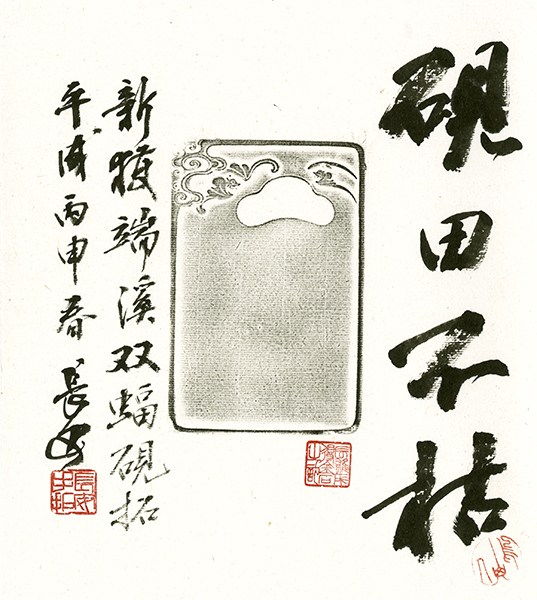 硯田不枯
新獲端溪双蝠硯拓
平成丙申春 長安